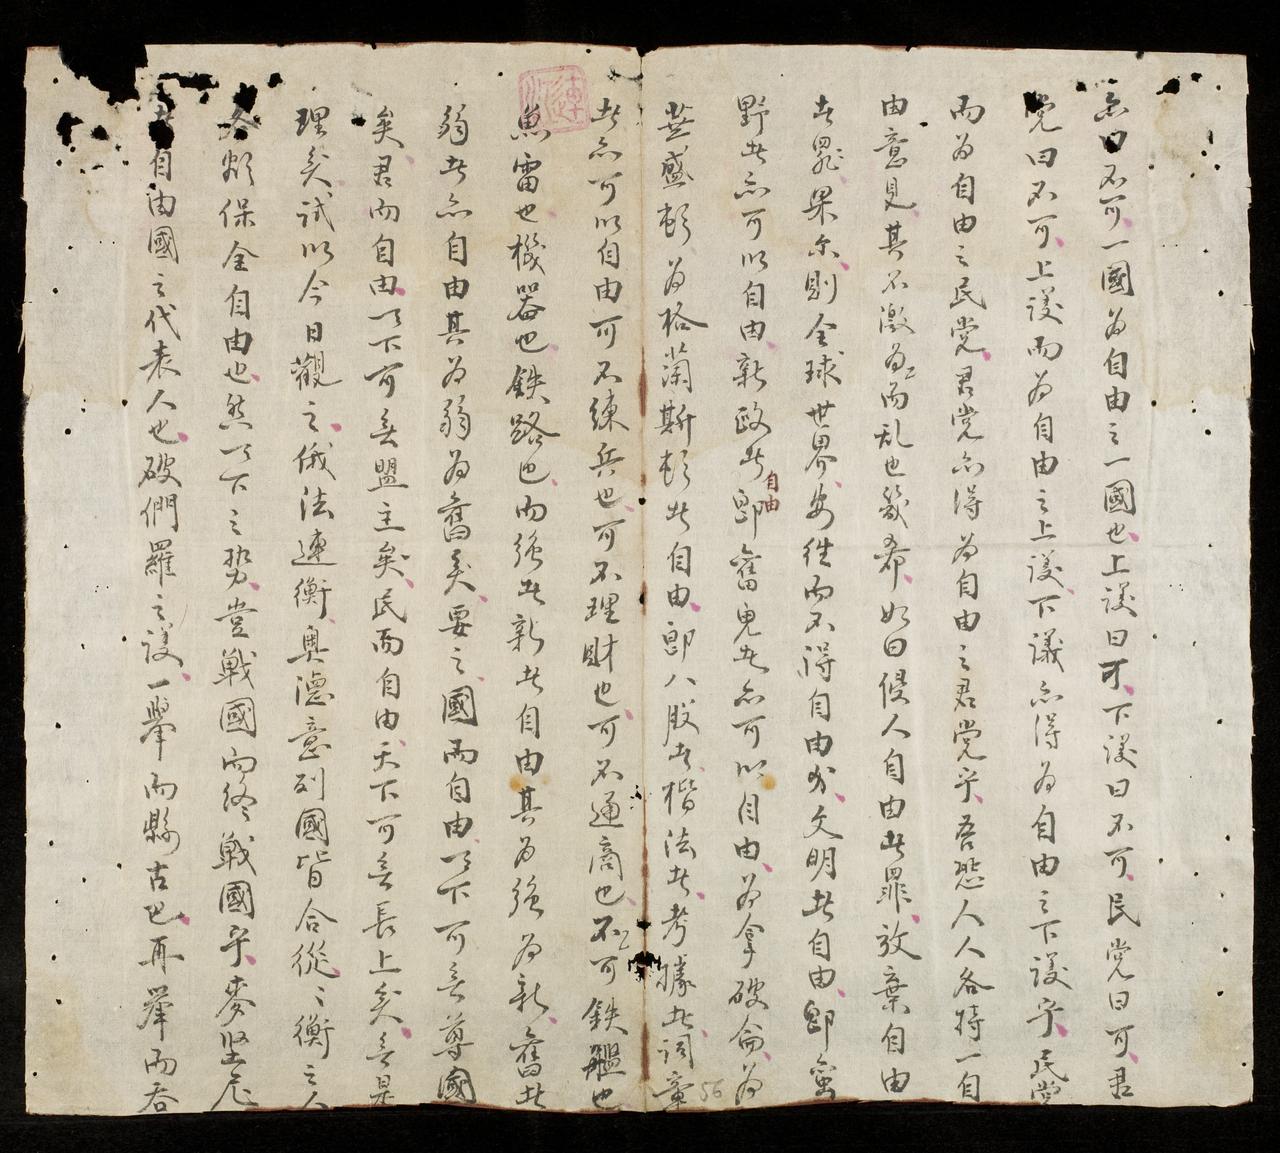 亦曰不可一國為自由之一國也上议曰可下议曰不可民党曰可君
党曰不可上议而為自由之上议下議亦得為自由之下议乎民党
而為自由之民党君党亦得為自由之君党乎吾恐人人各持一自
由意見其不激而為乱也幾希如曰侵人自由者罪放棄自由
者罪果尔則全球世界安往而不得自由哉文明者自由即蛮
野者亦可以自由新政者自由即舊鬼者亦可以自由為拿破侖為
華盛頓為格蘭斯頓者自由即八股者楷法者考據者词章
者亦可以自由可不練兵也可不理財也可不通商也可不鉄艦也
魚雷也機器也鉄路也而強者新者自由其為強為新舊者
弱者亦自由其為弱為舊矣要之國而自由天下可无尊國
矣君而自由天下可无盟主矣民而自由天下可无長上矣无是
理矣试以今日觀之俄法連衡奥德意列國皆合從從衡之人
冬烦保全自由也然天下之势豈戦國而終戦國乎麥坚尼
者自由國之代表人也破們羅之议一舉而縣古巴再舉而吞